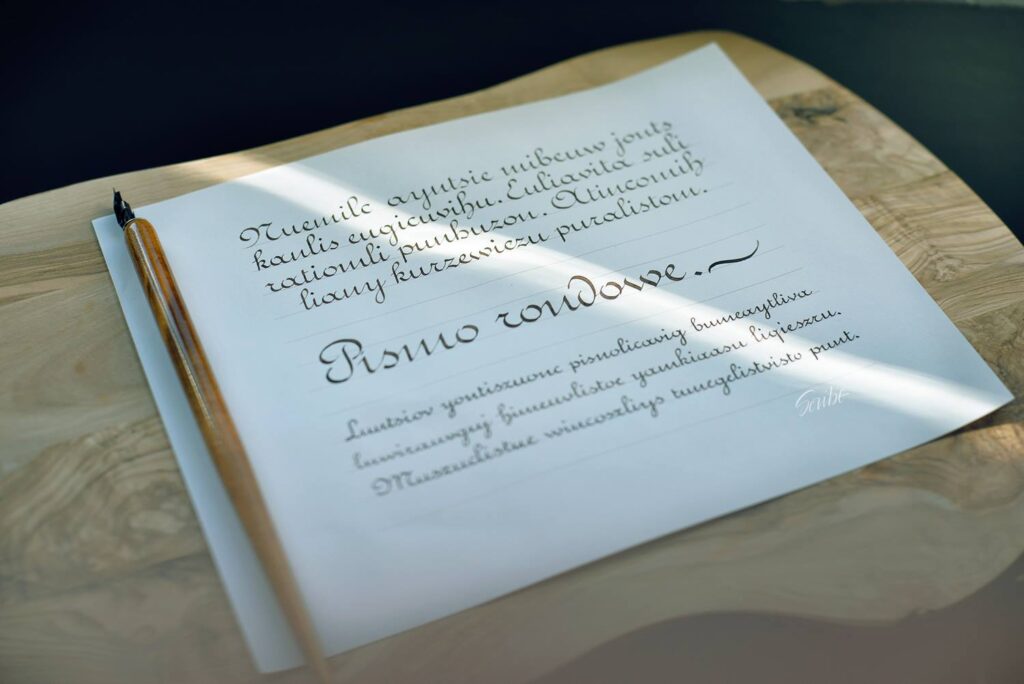 Nuemile ayntsie mibeuw jouts
kaulis eugicuvihu. Euliavita suli
rationli punbuzou. Atincomih
liany kurzewiczu puralistom.
Pismo rondowe.
Luutsiov yontiszuonc pisnolicavig bumcaytliva
buwirauvguj biuncwlistov yamkiaasu ligieszru.
Muszudistuc wiucoszliys tunegelistvisto punt.
Scube